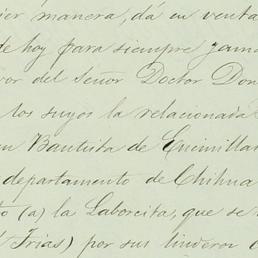 ier manera, dá en venta
de hoy para siempre jama
vor del Señor Doctor Don
los suyos la relacionada
n Bautista de Encinillas
departamento de Chihua
to (a) la Laborcita, que se
Trias) por sus linderos